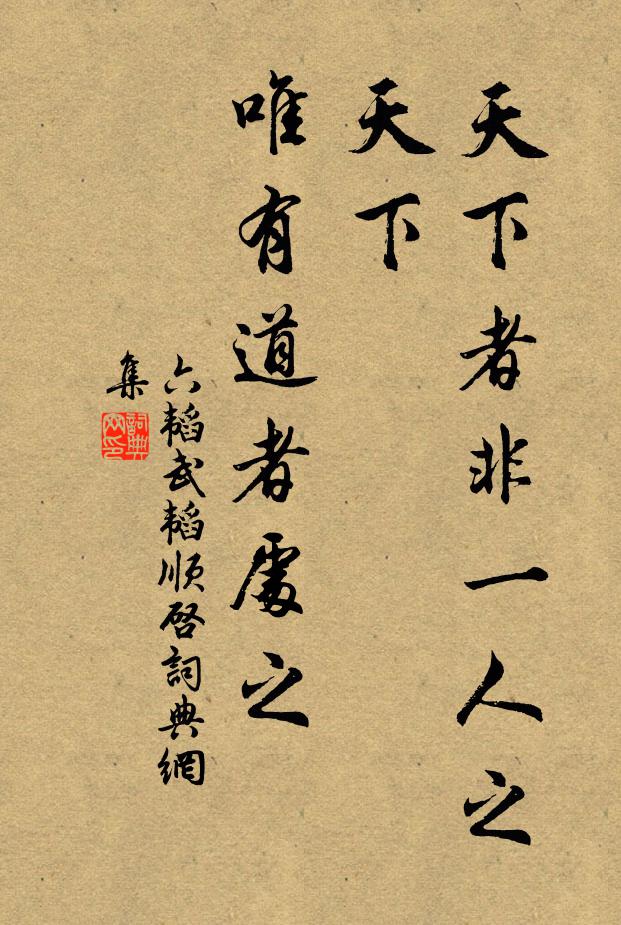 天下者非一人之
天下
唯有道者處之
六韜武韜順啓詞典網
集
詞典
网印